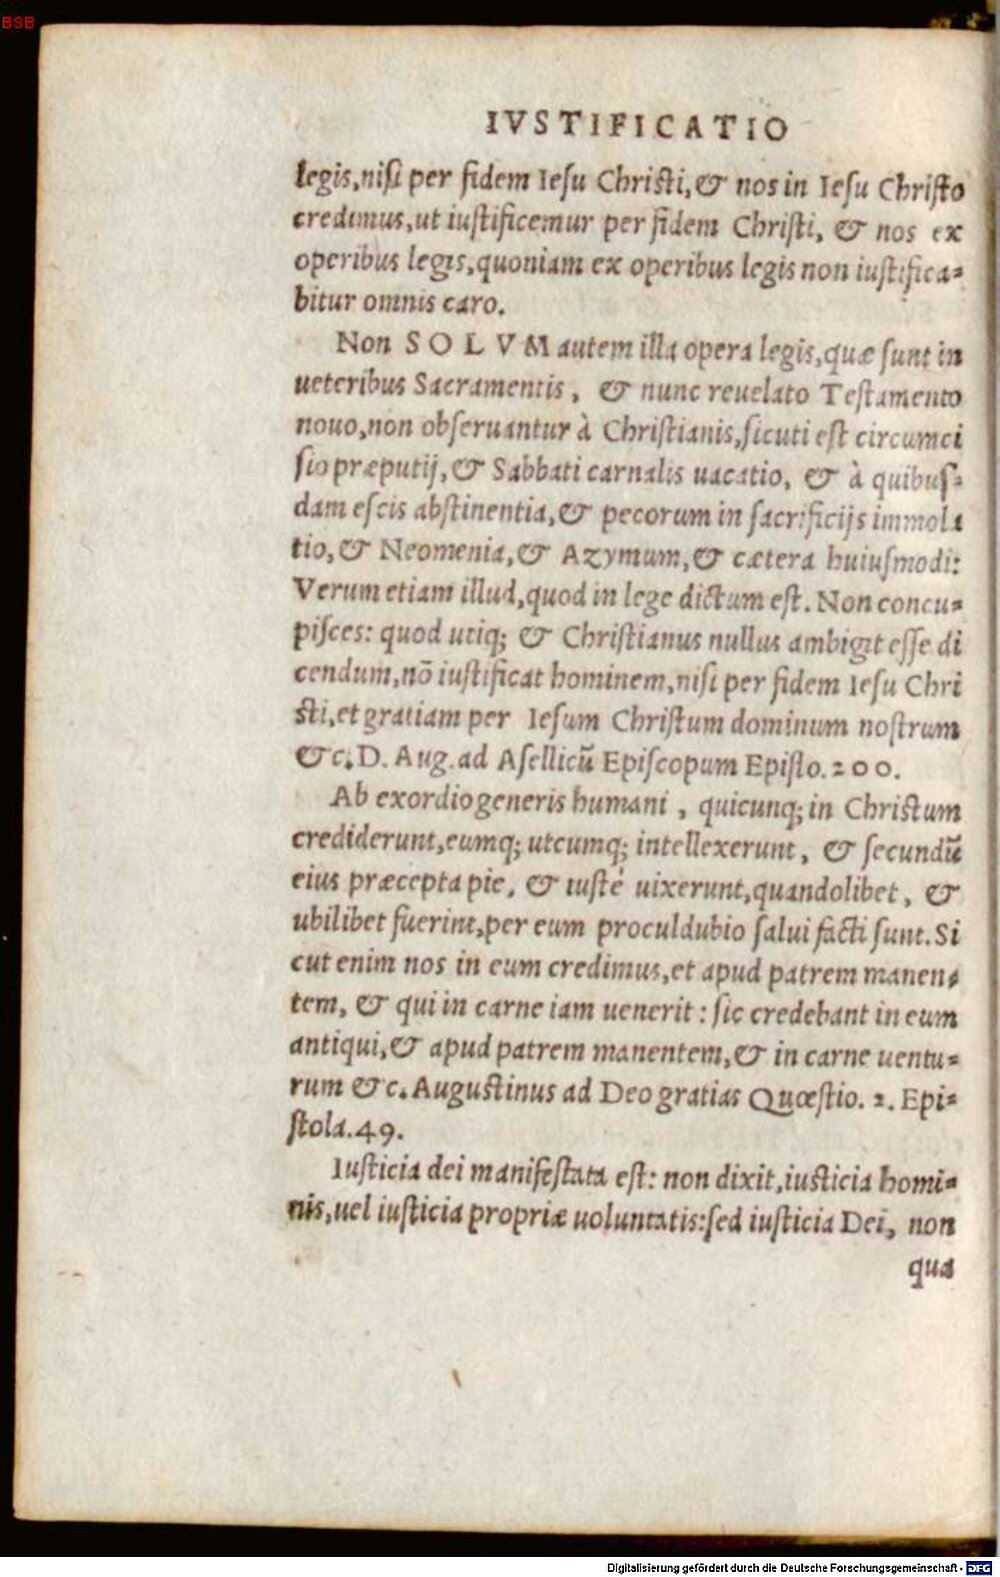 BSB
IVSTIFICATIO
legis, nisi per fidem Iesu Christi, & nos in Iesu Christo
credimus, ut iustificemur per fidem Christi, & nos ex
operibus legis, quoniam ex operibus legis non iustifica-
bitur omnis caro.
Non SOLVM autem illa opera legis, quæ sunt in
ueteribus Sacramentis, & nunc reuelato Testamento
nouo, non obseruantur à Christianis, sicuti est circumci
sio præputij, & Sabbati carnalis uacatio, & à quibus-
dam escis abstinentia, & pecorum in sacrificijs immola
tio, & Neomenia, & Azymum, & cætera huiusmodi:
Verum etiam illud, quod in lege dictum est. Non concu-
pisces: quod utiq; & Christianus nullus ambigit esse di
cendum, nō iustificat hominem, nisi per fidem Iesu Chri
sti, et gratiam per Iesum Christum dominum nostrum
&c. D. Aug. ad Asellicū Episcopum Episto. 200.
Ab exordio generis humani, quicunq; in Christum
crediderunt, eumq; utcumq; intellexerunt, & secundū
eius præcepta pie, & iusté uixerunt, quandolibet, &
ubilibet fuerint, per eum proculdubio salui facti sunt. Si
cut enim nos in eum credimus, et apud patrem manen-
tem, & qui in carne iam uenerit: sic credebant in eum
antiqui, & apud patrem manentem, & in carne uentu-
rum &c. Augustinus ad Deo gratias Quæstio. 2. Epi-
stola. 49.
Iusticia dei manifestata est: non dixit, iusticia homi-
nis, uel iusticia propriæ uoluntatis: sed iusticia Dei, non
qua
Digitalisierung gefördert durch die Deutsche Forschungsgemeinschaft - DFG